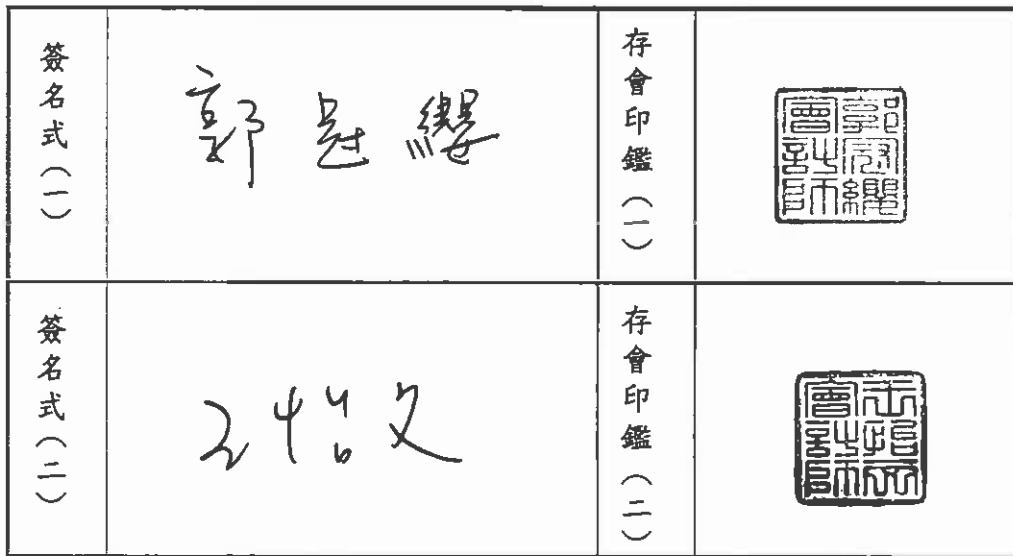 簽名式(一)
郭冠纓
存會印鑑(一)
郭冠纓會計師
簽名式(二)
王怡文
存會印鑑(二)
王怡文會計師